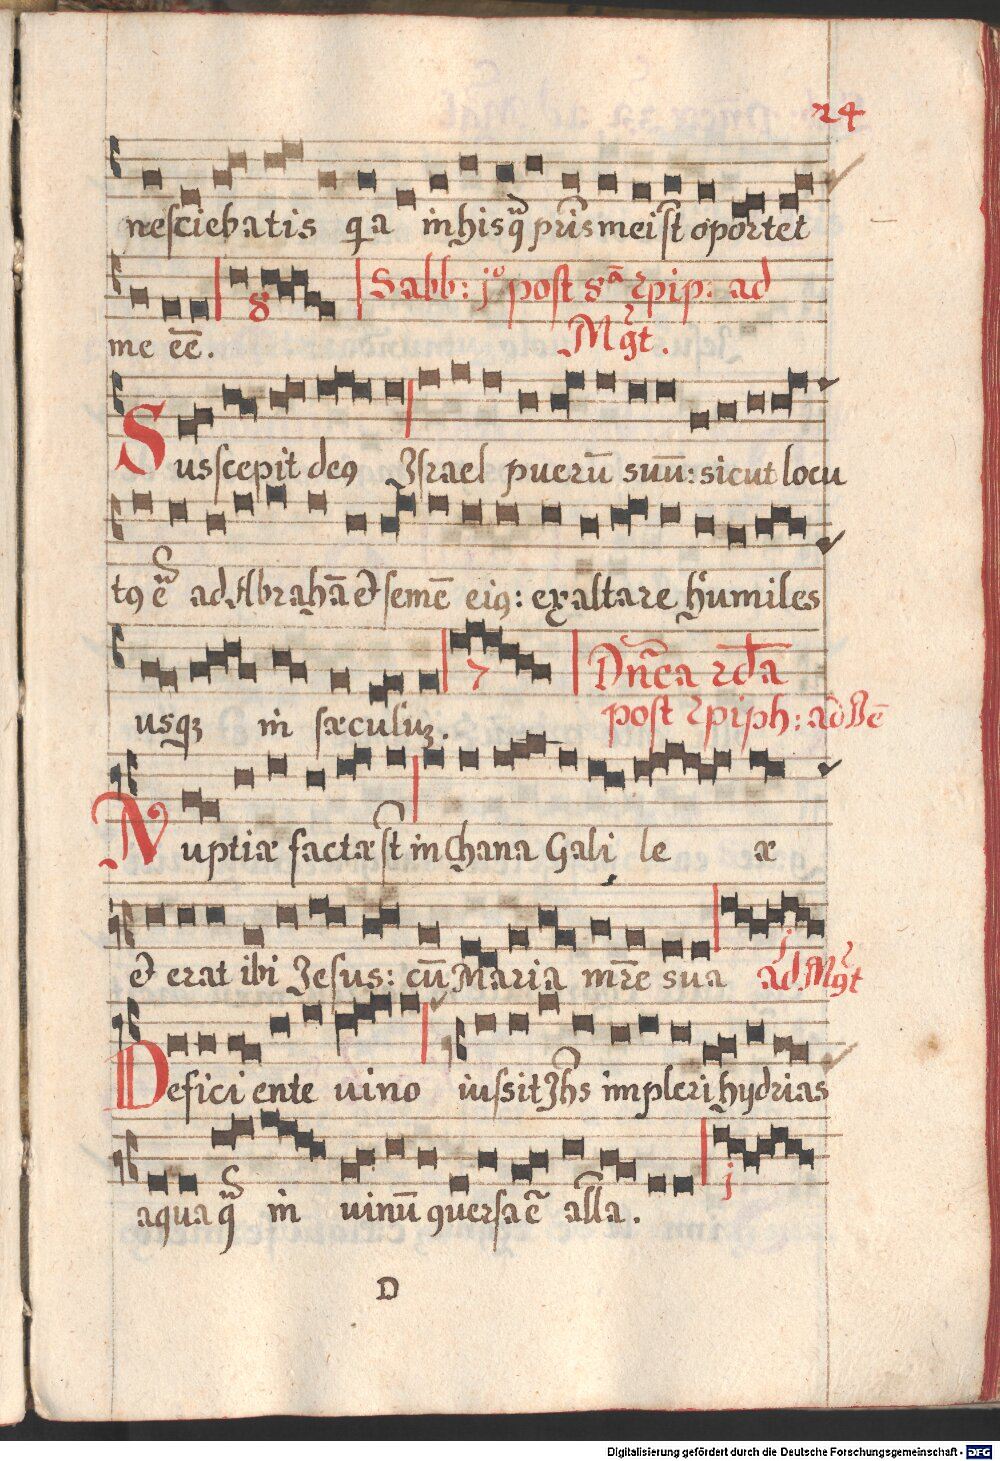 24
nesciebatis qa in his q̃ pr̃is mei st̃ oportet
8 Sabb: jº post 8ã Epip: ad
me eẽ. Mgt.
Susscepit deꝰ Israel pueru̅ suu̅: sicut locu
tꝰ ẽ ad Abrahã et semẽ eiꝰ: exaltare humiles
7 Dñica 2dã
usqꝫ in sæculuꝫ. post Epiph: ad Bẽ
Nuptiæ factæ st̃ in Chana Galileæ
et erat ibi Jesus: cu̅ Maria mr̃e sua j ad Mgt
Deficiente uino iussit Jhs̃ impleri hydrias
j
aqua q̃ in uinu̅ ꝯuersa ẽ all̃a.
D
Digitalisierung gefördert durch die Deutsche Forschungsgemeinschaft - DFG